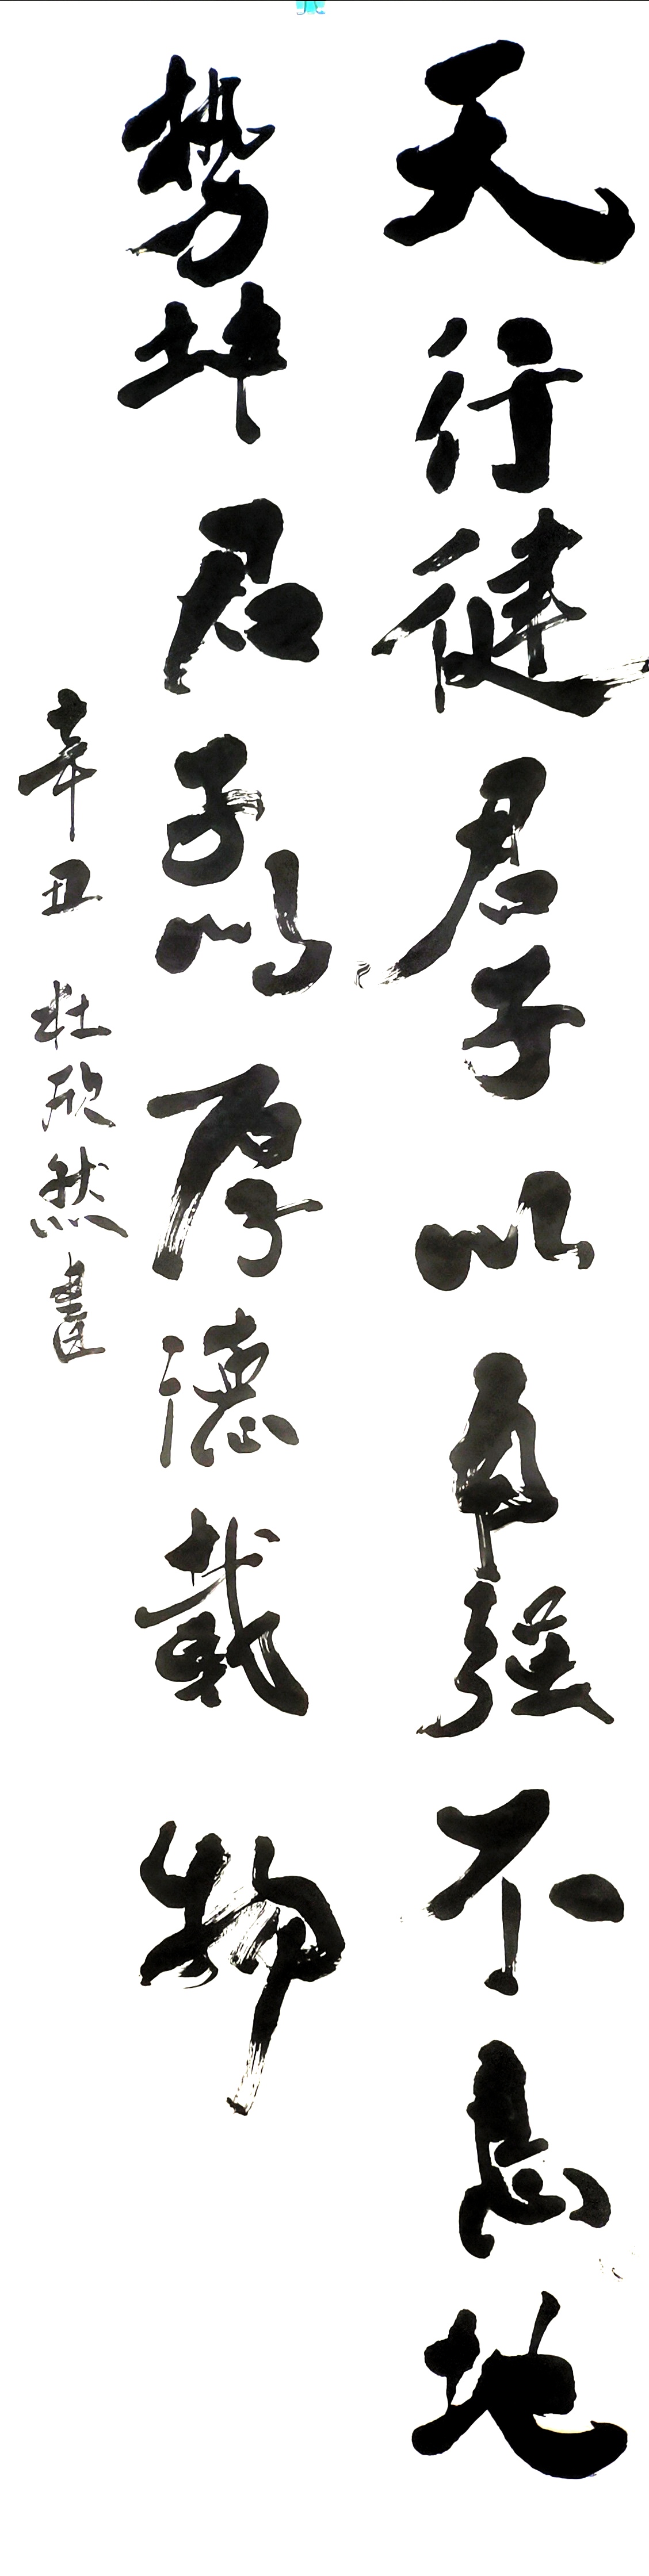 天行健君子以自强不息地
势坤君子以厚德载物
辛丑 杜欣然書